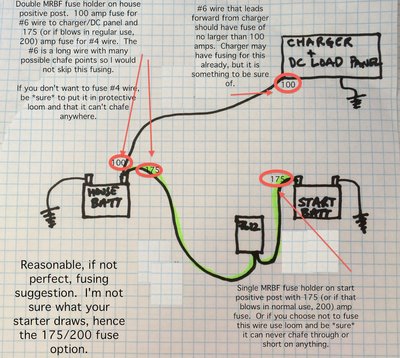 Double MRBF fuse holder on house
positive post. 100 amp fuse for
#6 wire to charger/DC panel and
175 (or if blows in regular use,
200) amp fuse for #4 wire. The
#6 is a long wire with many
possible chafe points so I would
not skip this fusing.
If you don't want to fuse #4 wire,
be *sure* to put it in protective
loom and that it can't chafe
anywhere.
#6 wire that leads
forward from charger
should have fuse of
no larger than 100
amps. Charger may
have fusing for this
already, but it is
something to be sure
of.
CHARGER
+
DC LOAD PANEL
100
100
175
175
HOUSE
BATT
START
BATT
Reasonable, if not
perfect, fusing
suggestion. I'm not
sure what your
starter draws, hence
the 175/200 fuse
option.
Single MRBF fuse holder on start
positive post with 175 (or if that
blows in normal use, 200) amp
fuse. Or if you choose not to fuse
this wire use loom and be *sure*
it can never chafe through or
short on anything.